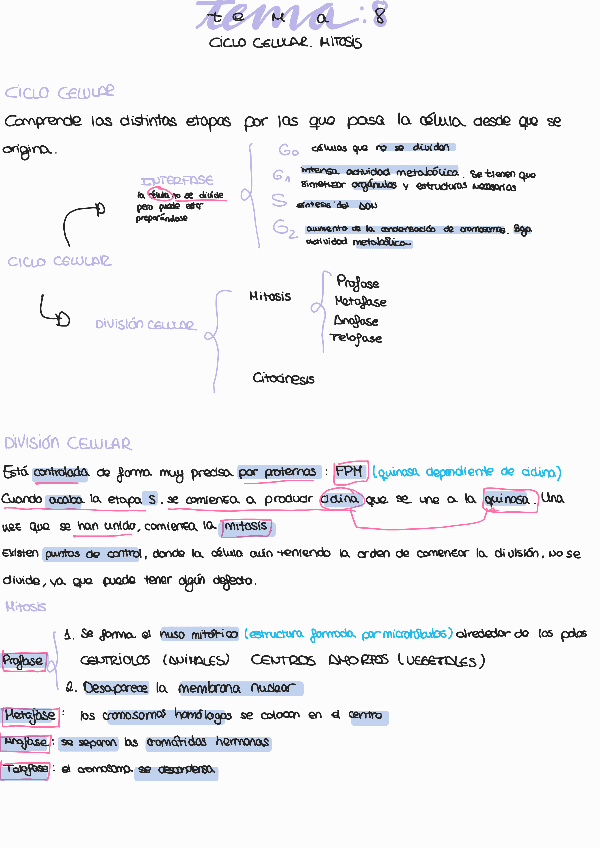 tema:8
tema 8
CICLO CELULAR. MITOSIS
CICLO CELULAR
Comprende las distintas etapas por las que pasa la célula desde que se
origina.
INTERFASE
la célula no se divide
pero puede estar
preparándose
G0 células que no se dividen
G1 intensa actividad metabólica. Se tienen que
sintetizar orgánulos y estructuras necesarias
S síntesis del ADN
G2 aumento de la condensación de cromosomas. Baja
actividad metabólica
CICLO CELULAR
DIVISIÓN CELULAR
Mitosis
Profase
Metafase
Anafase
Telofase
Citocinesis
DIVISIÓN CELULAR
Está controlada de forma muy precisa por proteínas: FPM (quinasa dependiente de ciclina)
Cuando acaba la etapa S. se comienza a producir ciclina que se une a la quinasa. Una
vez que se han unido, comienza la mitosis
Existen puntos de control, donde la célula aún teniendo la orden de comenzar la división, no se
divide, ya que puede tener algún defecto.
Mitosis
Profase
1. Se forma el huso mitótico (estructura formada por microtúbulos) alrededor de los polos
CENTRÍOLOS (ANIMALES) CENTROS AMORFOS (VEGETALES)
2. Desaparece la membrana nuclear
Metafase: los cromosomas homólogos se colocan en el centro
Anafase: se separan las cromátidas hermanas
Telofase: el cromosoma se descondensa